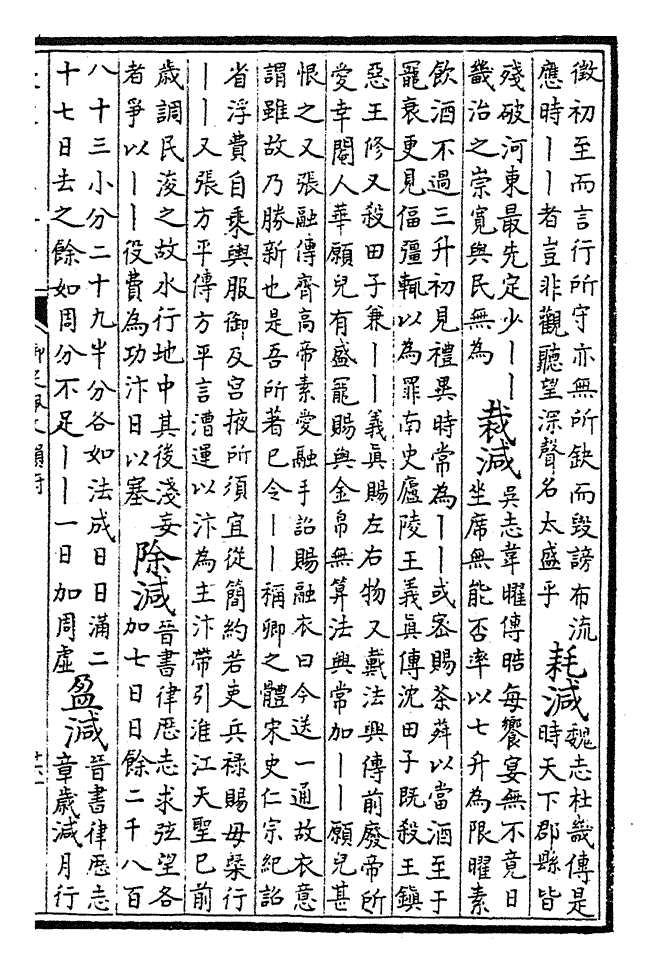 徵初至而言行所守亦無所缺而毀謗布流
應時丨丨者豈非觀聽望深聲名太盛乎
耗減
魏志杜畿傳是
時天下郡縣皆
殘破河東最先定少丨丨
畿治之崇寬與民無為
裁減
吳志韋曜傳晧每饗宴無不竟日
坐席無能否率以七升為限曜素
飲酒不過三升初見禮異時常為丨丨或密賜茶荈以當酒至于
寵衰更見偪彊輒以為罪南史廬陵王義眞傳沈田子既殺王鎮
惡王修又殺田子兼丨丨義眞賜左右物又戴法興傳前廢帝所
愛幸閹人華願兒有盛寵賜與金帛無算法興常加丨丨願兒甚
恨之又張融傳齊高帝素愛融手詔賜融衣曰今送一通故衣意
謂雖故乃勝新也是吾所著已令丨丨稱卿之體宋史仁宗紀詔
省浮費自乘輿服御及宮掖所須宜從簡約若吏兵祿賜毋檃行
丨丨又張方平傳方平言漕運以汴為主汴帶引淮江天聖已前
歲調民浚之故水行地中其後淺妄
者爭以丨丨役費為功汴日以塞
除減
晉書律厯志求弦望各
加七日日餘二千八百
八十三小分二十九半分各如法成日日滿二
十七日去之餘如周分不足丨丨一日加周虛
盈減
晉書律厯志
章歲減月行